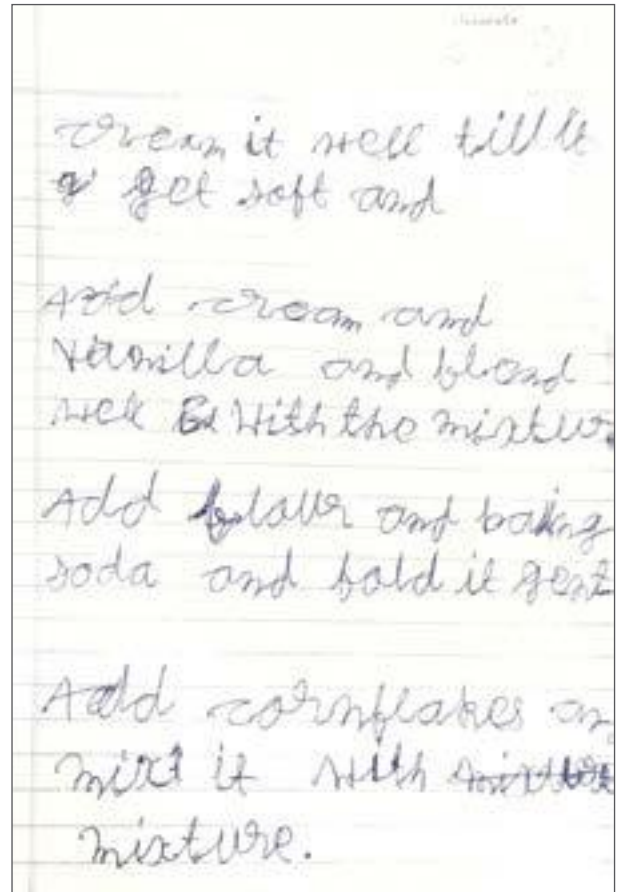 cream it well till it
get soft and
Add cream and
vanilla and blend
well with the mixtur
Add flour and baking
soda and fold it gent
Add cornflakes an
mix it with mixture
mixture.